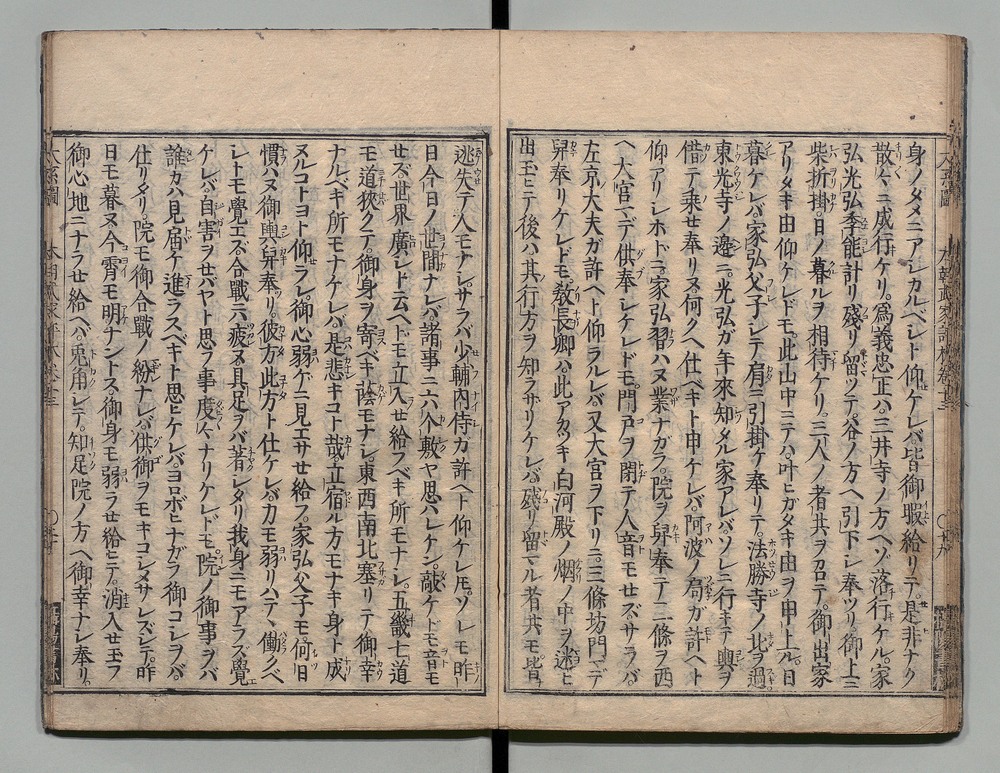 身ノタメニアシカルベシト仰ケレバ皆御暇給リテ是非ナク
散々ニ成行ケリ爲義忠正ハ三井寺ノ方ヘゾ落行ケル家
弘光弘季能計リ殘リ留ツテ谷ノ方ヘ引下シ奉ツリ御上ニ
柴折掛日ノ暮ルヲ相待ケリ三人ノ者共ヲ召テ御出家
アリタキ由仰ケレドモ此山中ニテハ叶ヒガタキ由ヲ申上ル日
暮ケレバ家弘父子シテ肩ニ引掛ケ奉リテ法勝寺ノ北ヲ過
東光寺ノ邊ニ光弘ガ年來知タル家アレバソレニ行キテ輿ヲ
借テ乘せ奉リヌ何クヘ仕ベキト申ケレバ阿波ノ局ガ許ヘト
仰アリシホドニ家弘習ハヌ業ナガラ院ヲ舁奉テ二條ヲ西
ヘ大宮マデ供奉シケレドモ門戸ヲ閉テ人音モせズサラバ
左京大夫ガ許ヘト仰ラルレバ又大宮ヲ下リニ三條坊門マデ
舁奉リケレドモ敎長卿ハ此アカツキ白河殿ノ烟ノ中ヲ迷ヒ
出玉ヒテ後ハ其行方ヲ知ラサリケレバ殘リ留マル者共モ皆
逃失テ人モナシサラバ少輔內侍カ許ヘト仰ケレ𪜈ソレモ昨
日今日ノ世間ナレバ諸事ニ六个敷ヤ思ハレケン敲ケドモ音モ
せズ世界廣シト云ヘドモ立入せ給フベキ所モナシ五畿七道
モ道狹クテ御身ヲ寄ベキ蔭モナシ東西南北塞リテ御幸
ナルベキ所モナケレバ是悲キコト哉立宿ル方モナキ身ト成
ヌルコトヨト仰ラレ御心弱ゲニ見エサせ給フ家弘父子モ何旧
慣ハヌ御輿舁奉リ彼方此方ト仕ケレバカモ弱リハテ働クベ
シトモ覺エズ合戰ニ疲ヌ具足ラバ著シタリ我身ニモアラズ覺
ケレバ自害ヲせバヤト思フ事度々ナリケレドモ院ノ御事ヲバ
誰カハ見届ケ進ラスベキト思ヒケレバヨロボヒナガラ御コシヲバ
仕リタリ院モ御合戰ノ紛ナレバ供御ヲモキコシメサレズシテ昨
日モ暮ヌ今霄モ明ナントス御身モ弱ラせ給ヒテ消入せ玉フ
御心地ニナラせ給ヘバ兎角シテ知足院ノ方ヘ御幸ナシ奉リ